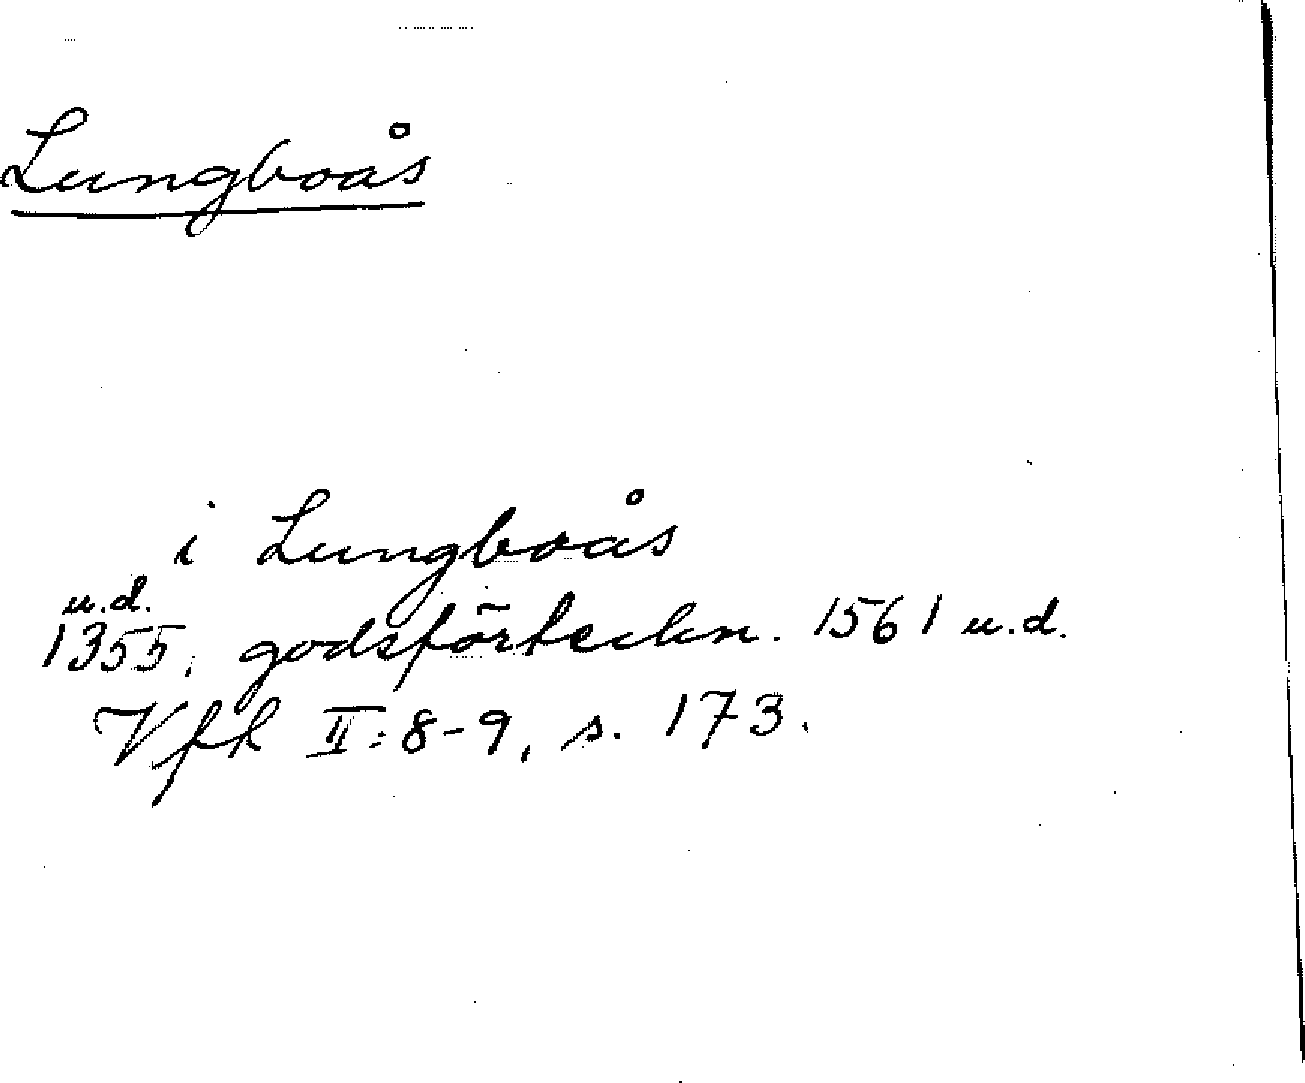 Lungboås
i Lungboås
u.d.
1355, godsförteckn. 1561 u.d.
Vfk II:8-9, s. 173.